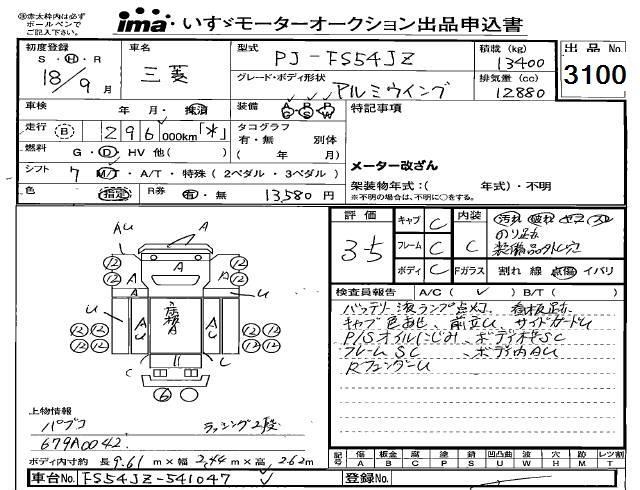 ※赤太枠内は必ず
ボールペンで
ご記入下さい。
ima いすゞモーターオークション出品申込書
初度登録
S・H・R
18/9月
車名
三菱
型式
PJ-FS54JZ
グレード・ボディ形状
アルミウイング
積載(kg)
13400
排気量(cc)
12880
出品No.
3100
車検 年 月・抹消
装備 A/C P/S P/W
特記事項
走行 B 296,000km「*」
タコグラフ
有・無 別体
( 年 月)
燃料 G・D・HV 他( )
メーター改ざん
シフト 7 M/T・A/T・特殊(2ペダル・3ペダル)
架装物年式:( 年式)・不明
※不明の場合は、不明に○をする。
色 指定 R券 有・無 13,580円
評価
3-5
キャブ C
フレーム C
ボディ C
内装
C
Fガラス
汚れ 破れ
のり跡
装備品外し穴
割れ 線 点傷 イバリ
検査員報告 A/C( ✓ ) B/T( )
バッテリー液ランプ点灯、看板跡
キャブ色あせ、前立U、サイドガードU
P/Sオイルにじみ、ボディ枠SC
フレームSC、ボディ内AU
RフェンダーU
AU A A
12 12 12 12
A A
U U
A U 床板 A A U
12 12 12 12
12 12 12 12
U C C U
C
6
上物情報
パブコ ラッシング2段
679A0042
ボディ内寸約 長9.61m×幅2.44m×高2.62m
記号 傷 A 板金 B 腐 C 塗 P 錆 S 凹凸曲 U 波 W 穴 H 跡 M レツ割 T
車台No. FS54JZ-541047
登録No.